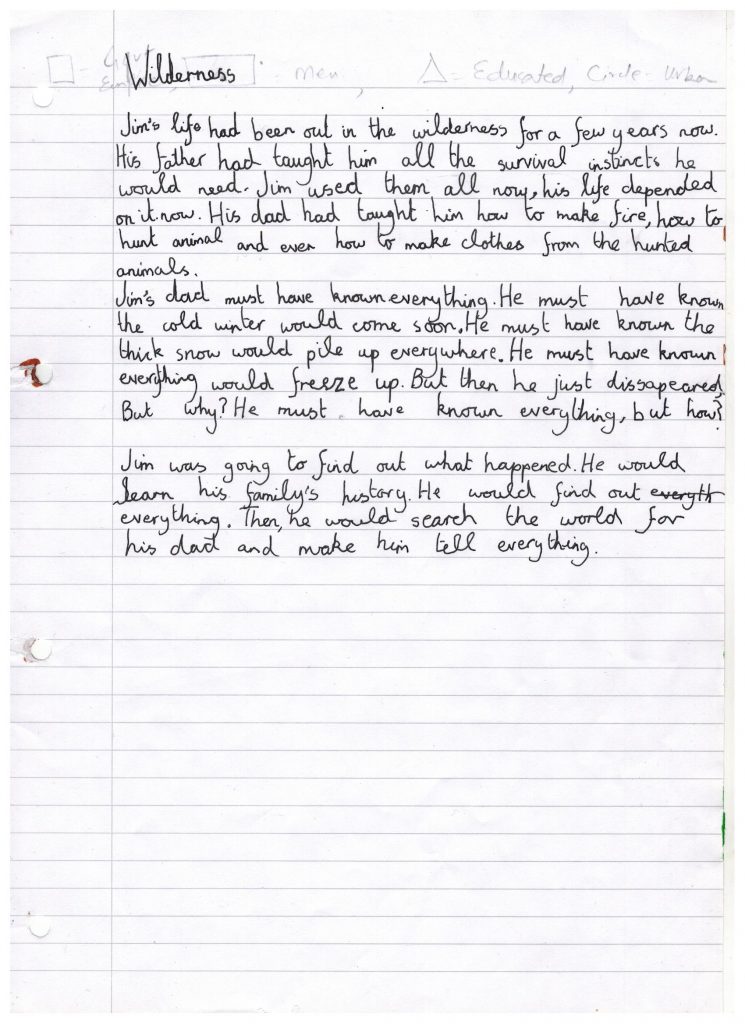 Govt
= Men, = Educated, Circle - Urban
Wilderness
Jim's life had been out in the wilderness for a few years now.
His father had taught him all the survival instincts he
would need. Jim used them all now, his life depended
on it now. His dad had taught him how to make fire, how to
hunt animal and even how to make clothes from the hunted
animals.
Jim's dad must have known everything. He must have known
the cold winter would come soon. He must have known the
thick snow would pile up everywhere. He must have known
everything would freeze up. But then he just dissapeared.
But why? He must have known everything, but how?
Jim was going to find out what happened. He would
learn his family's history. He would find out everyth
everything. Then, he would search the world for
his dad and make him tell everything.